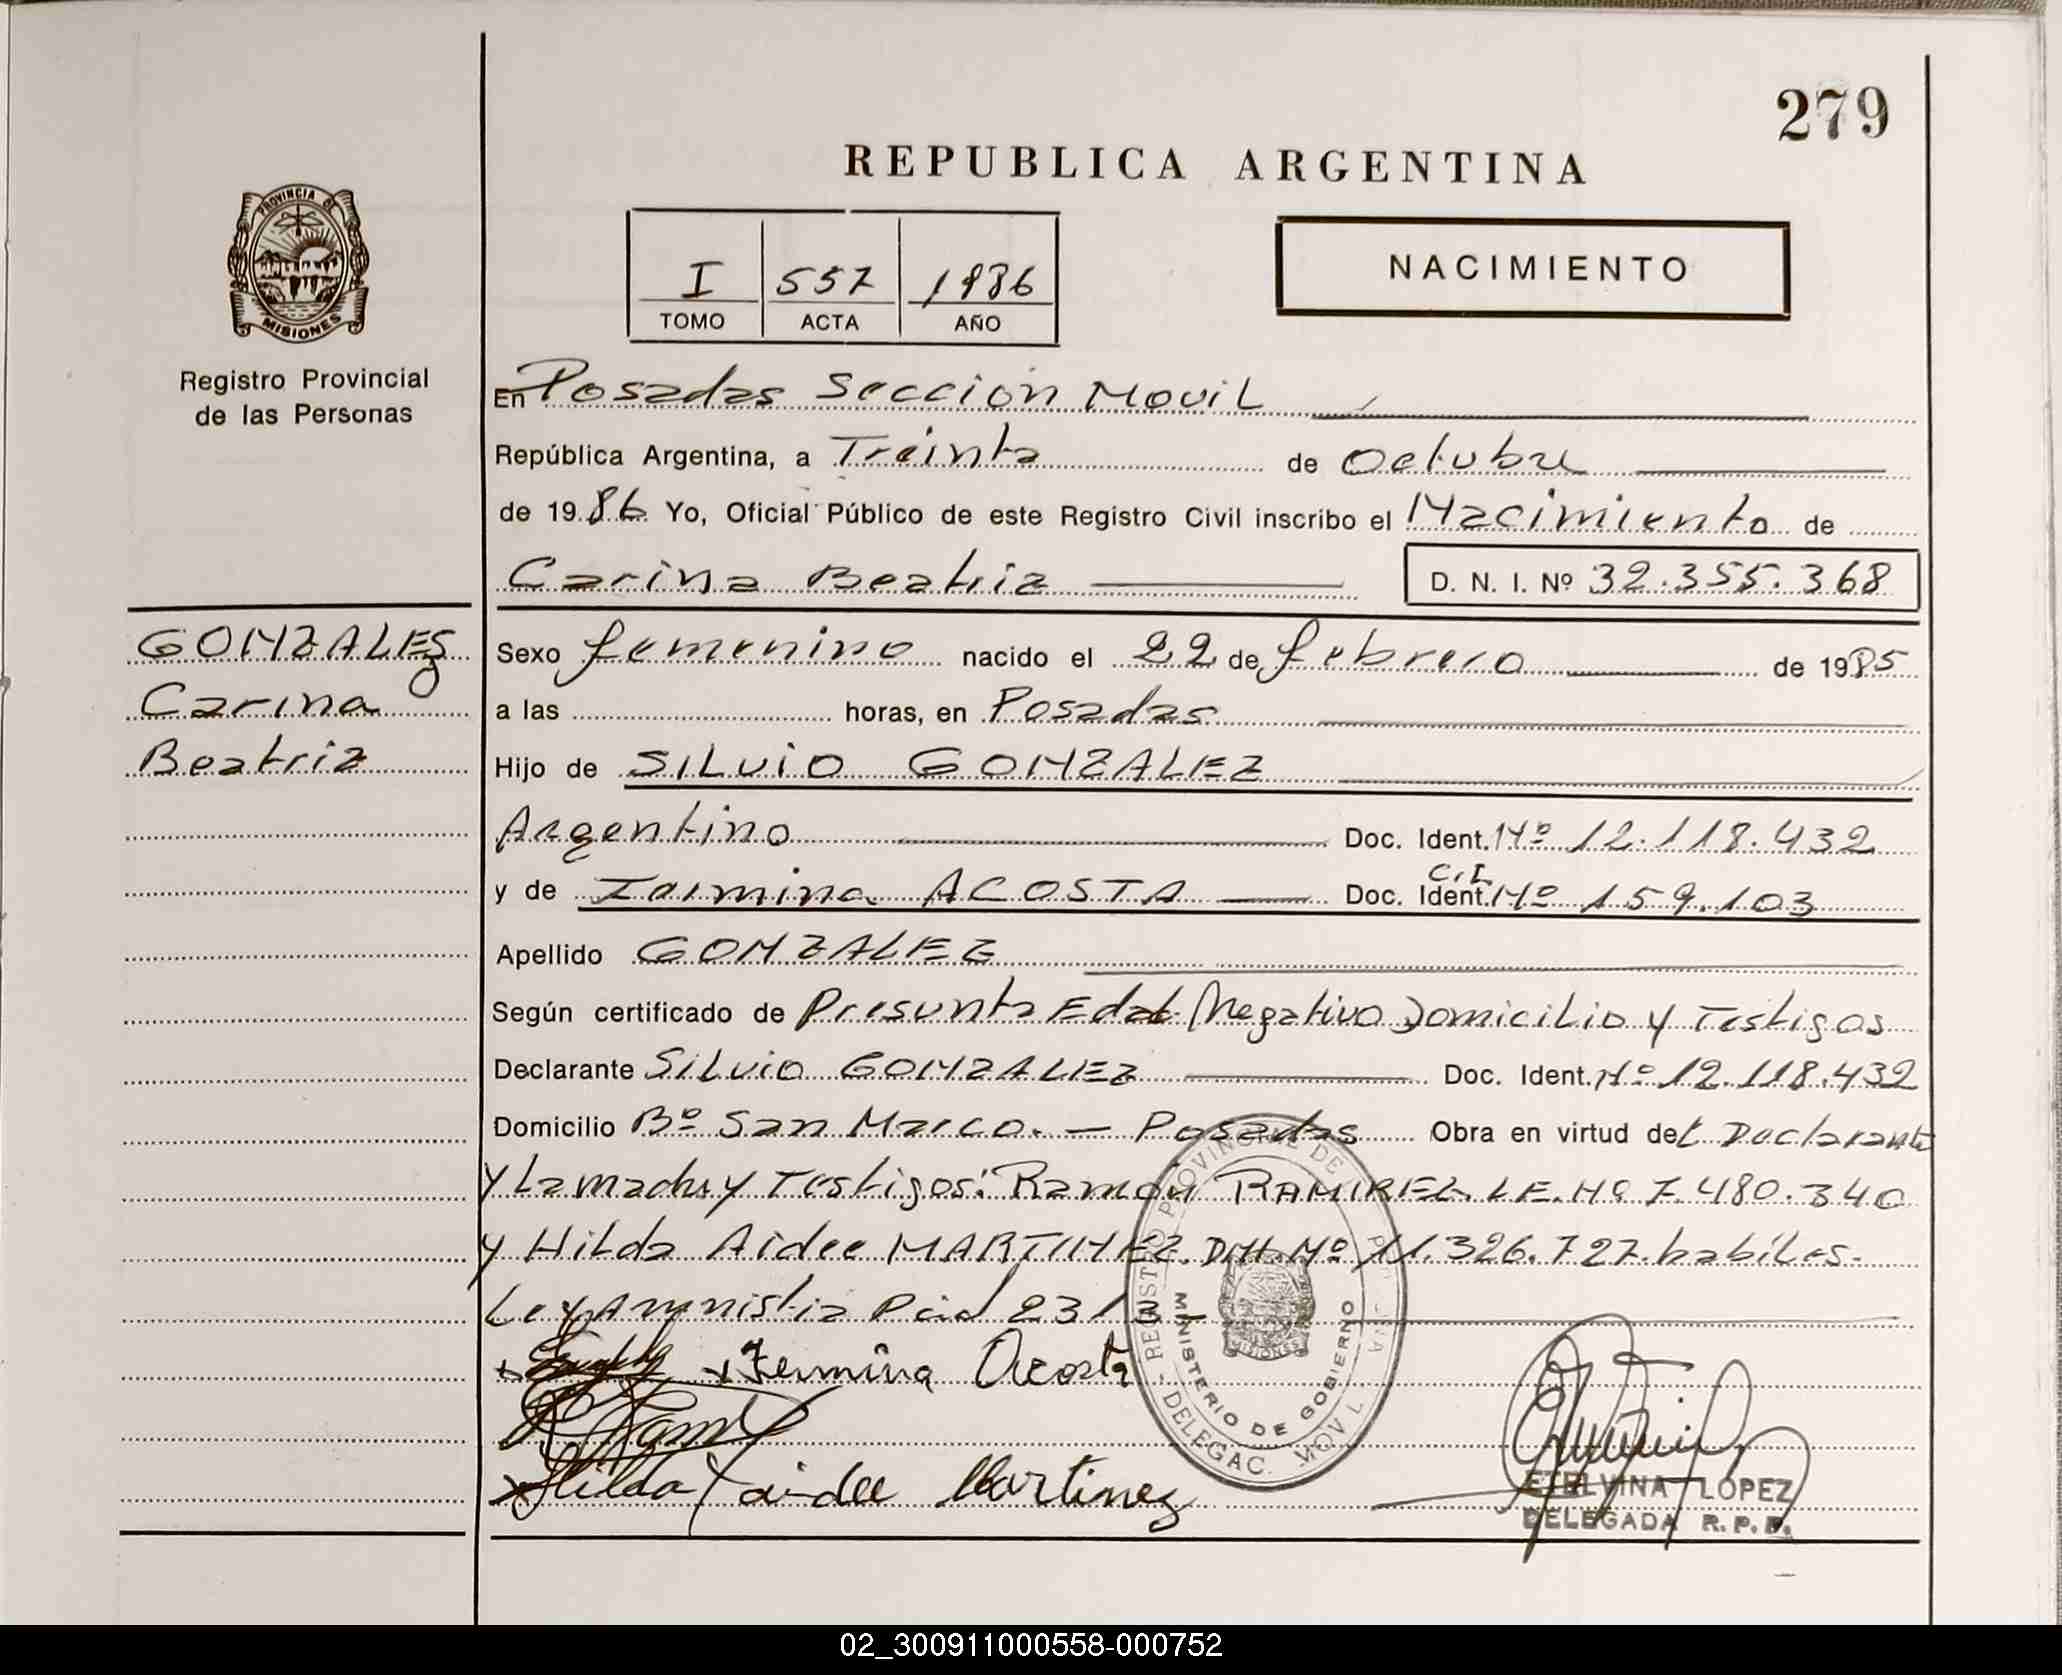 279
REPUBLICA ARGENTINA
PROVINCIA DE
MISIONES
Registro Provincial
de las Personas
I 557 1986
TOMO ACTA AÑO
NACIMIENTO
En Posadas Sección Movil
República Argentina, a Treinta de Octubre
de 1986 Yo, Oficial Público de este Registro Civil inscribo el Nacimiento de
Carina Beatriz D. N. I. Nº 32.355.368
GONZALEZ
Carina
Beatriz
Sexo femenino nacido el 22 de febrero de 1985
a las horas, en Posadas
Hijo de SILVIO GONZALEZ
Argentino Doc. Ident. Nº 12.118.432
y de ACOSTA Doc. Ident. C.I Nº 159.103
Apellido GONZALEZ
Según certificado de Presunta Edad Negativo Domicilio y Testigos
Declarante Silvio GONZALEZ Doc. Ident. Nº 12.118.432
Domicilio Bº San Marco. - Posadas Obra en virtud del Declarante
y La madre y Testigos: Ramón RAMIREZ L.E. Nº 7.480.340
y Hilda Aidee MARTINEZ. DNI. Nº 11.326.727. habiles.
Ley Amnistia
Acosta
Hilda aidee Martinez
REGISTRO PROVINCIAL DE
MINISTERIO DE GOBIERNO
DELEGAC. MOVIL
ETELVINA LÓPEZ
DELEGADA R. P. P.
02_300911000558-000752